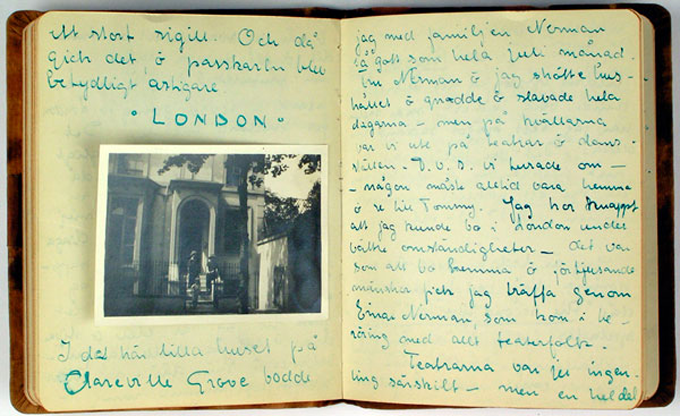 ett stort sigill. Och då
gick det, & passkarln blev
betydligt artigare.
• LONDON •
I det här lilla huset på
Clareville Grove bodde
jag med familjen Nerman
så gott som hela juli månad.
Fru Nerman & jag skötte hus-
hållet & gnodde & slavade hela
dagarna – men på kvällarna
var vi ute på teatrar & dans-
ställen. D.v.s. vi turade om –
– någon måste alltid vara hemma
& se till Tommy. Jag tror knappt
att jag kunde bo i London under
bättre omständigheter – det var
som att bo hemma & förtjusande
människor fick jag träffa genom
Einar Nerman, som kom i be-
röring med allt teaterfolk.
Teatrarna var just ingen-
ting särskilt – men en hel del